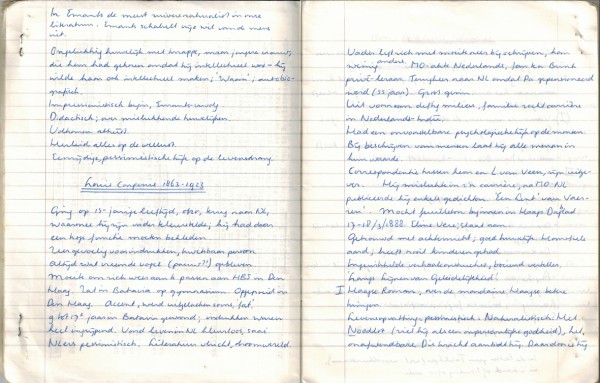 In Emants de meest
literatuur. Emants schakelt vrije wil van de mens
uit.
Ongelukkig huwelijk met knappe, maar jongere
die hem had gekozen omdat hij intellectueel was - hij
wilde haar ook intellectueel maken; 'Waan'; autobio-
grafisch.
Impressionistisch begin,
Didactisch; over mislukkende huwelijken.
Volkomen atheïst.
Herleid alles op de wellust.
Eenzijdige, pessimistische kijk op de levensdrang.
Louis Couperus 1863-1923
Ging op 15-jarige leeftijd, o/zo, terug naar NL,
waarmee hij zijn vader teleurstelde; hij had door
een hoge functie moeten bekleden.
Zeer gevoelig voor indrukken, kwetsbaar persoon
Altijd wat vreemde vogel gebleven
Moeite om zich weer aan te passen aan HBS in Den
Haag. Zat in Batavia op gymnasium. Opgegroeid in
Den Haag. Accent, werd uitgelachen soms, 'fat'.
9 tot 19e jaar in Batavia gewoond; indrukken waren
heel ingrijpend. Vond leven in NL kleurloos, saai.
NL era pessimistisch. Literatuur vlucht, droomwereld
Vader legt zich met moeite neer bij schrijven, kon
weinig anders. MO-akte Nederlands, Jan ten Brink
privé-leraar. Terugkeer naar NL omdat Pa gepensioneerd
werd (55 jaar). Groot gezin.
Uit voornaam deftig milieu, familie
in Nederlands-Indië.
Had een onwankelbare psychologische kijk op de mensen.
Bij beschrijven van mensen laat hij alle mensen in
hun waarde.
Correspondentie tussen hem en L van Veen, zijn uitge-
ver. Hij mislukte in z'n carrière, na MO-NL
publiceerde hij enkele gedichten. 'Een Lent van Vaer-
zen'. Mocht feuilleton beginnen in Haags Dagblad.
17-18/3/1888. Eline Vere; slaat aan.
Getrouwd met achternicht; goed huwelijk
aard; heeft nooit kinderen gehad.
Ingewikkelde verhaalconstructies, boeiend verteller.
'Langs lijnen van Geleidelijkheid'
I Haagse Roman, over de mondaine Haagse betere
kringen
Levensopvatting: pessimistisch: Naturalistisch: Het
Noodlot (ziet hij als een onpersoonlijke godheid), het
onafwendbare. Die kracht aanvaardt hij. Daardoor is hij